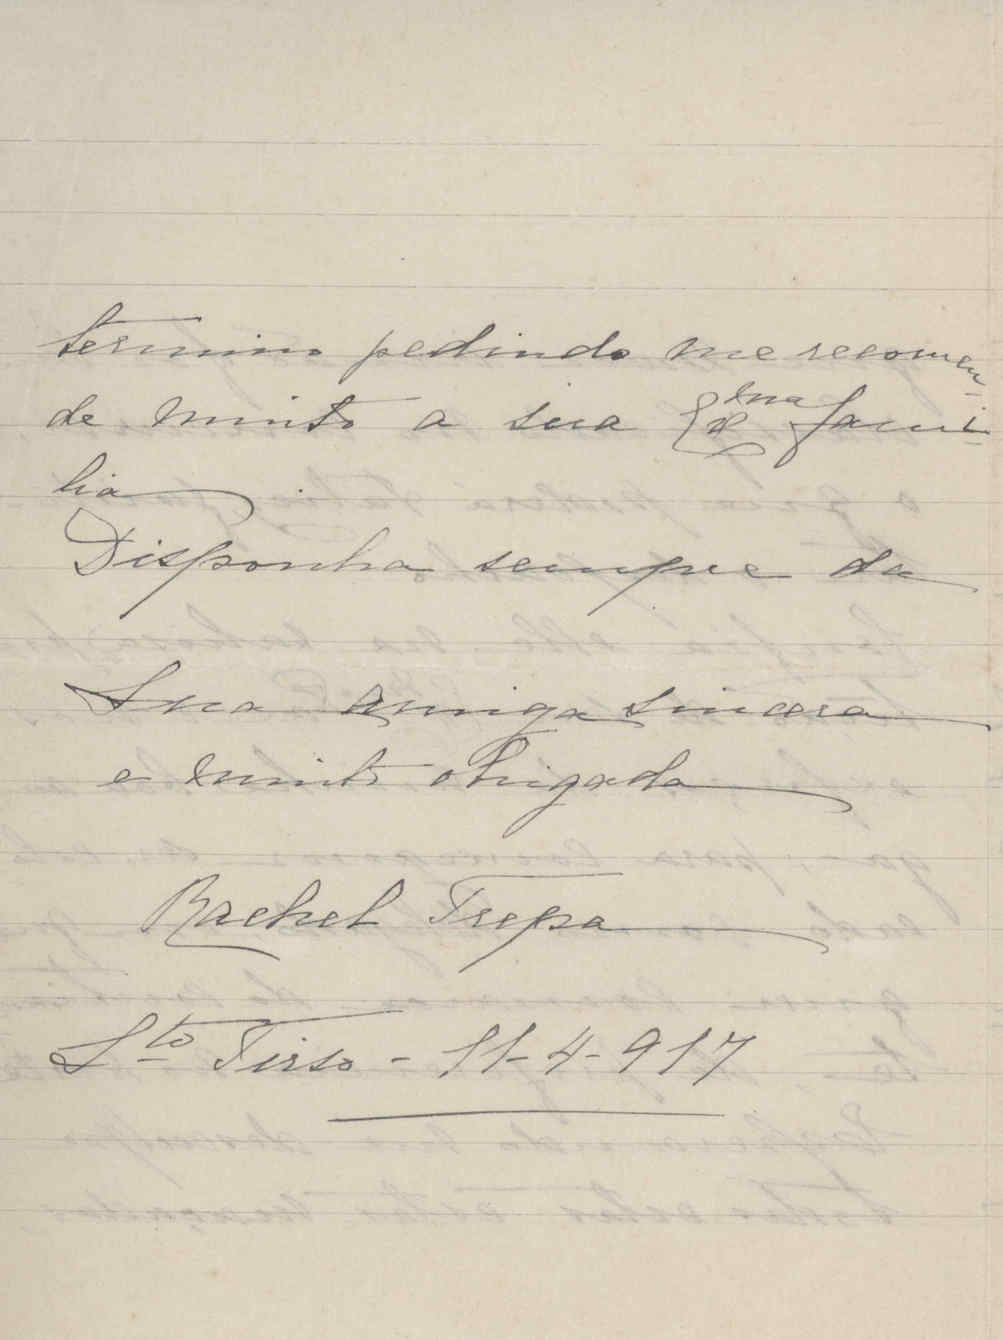 termino pedindo me recomen-
de muito a sua Exma fami-
lia.
Disponha sempre da
Sua Amiga sincera
e muito obrigada
Rachel Trepa
Sto Tirso - 11-4-917